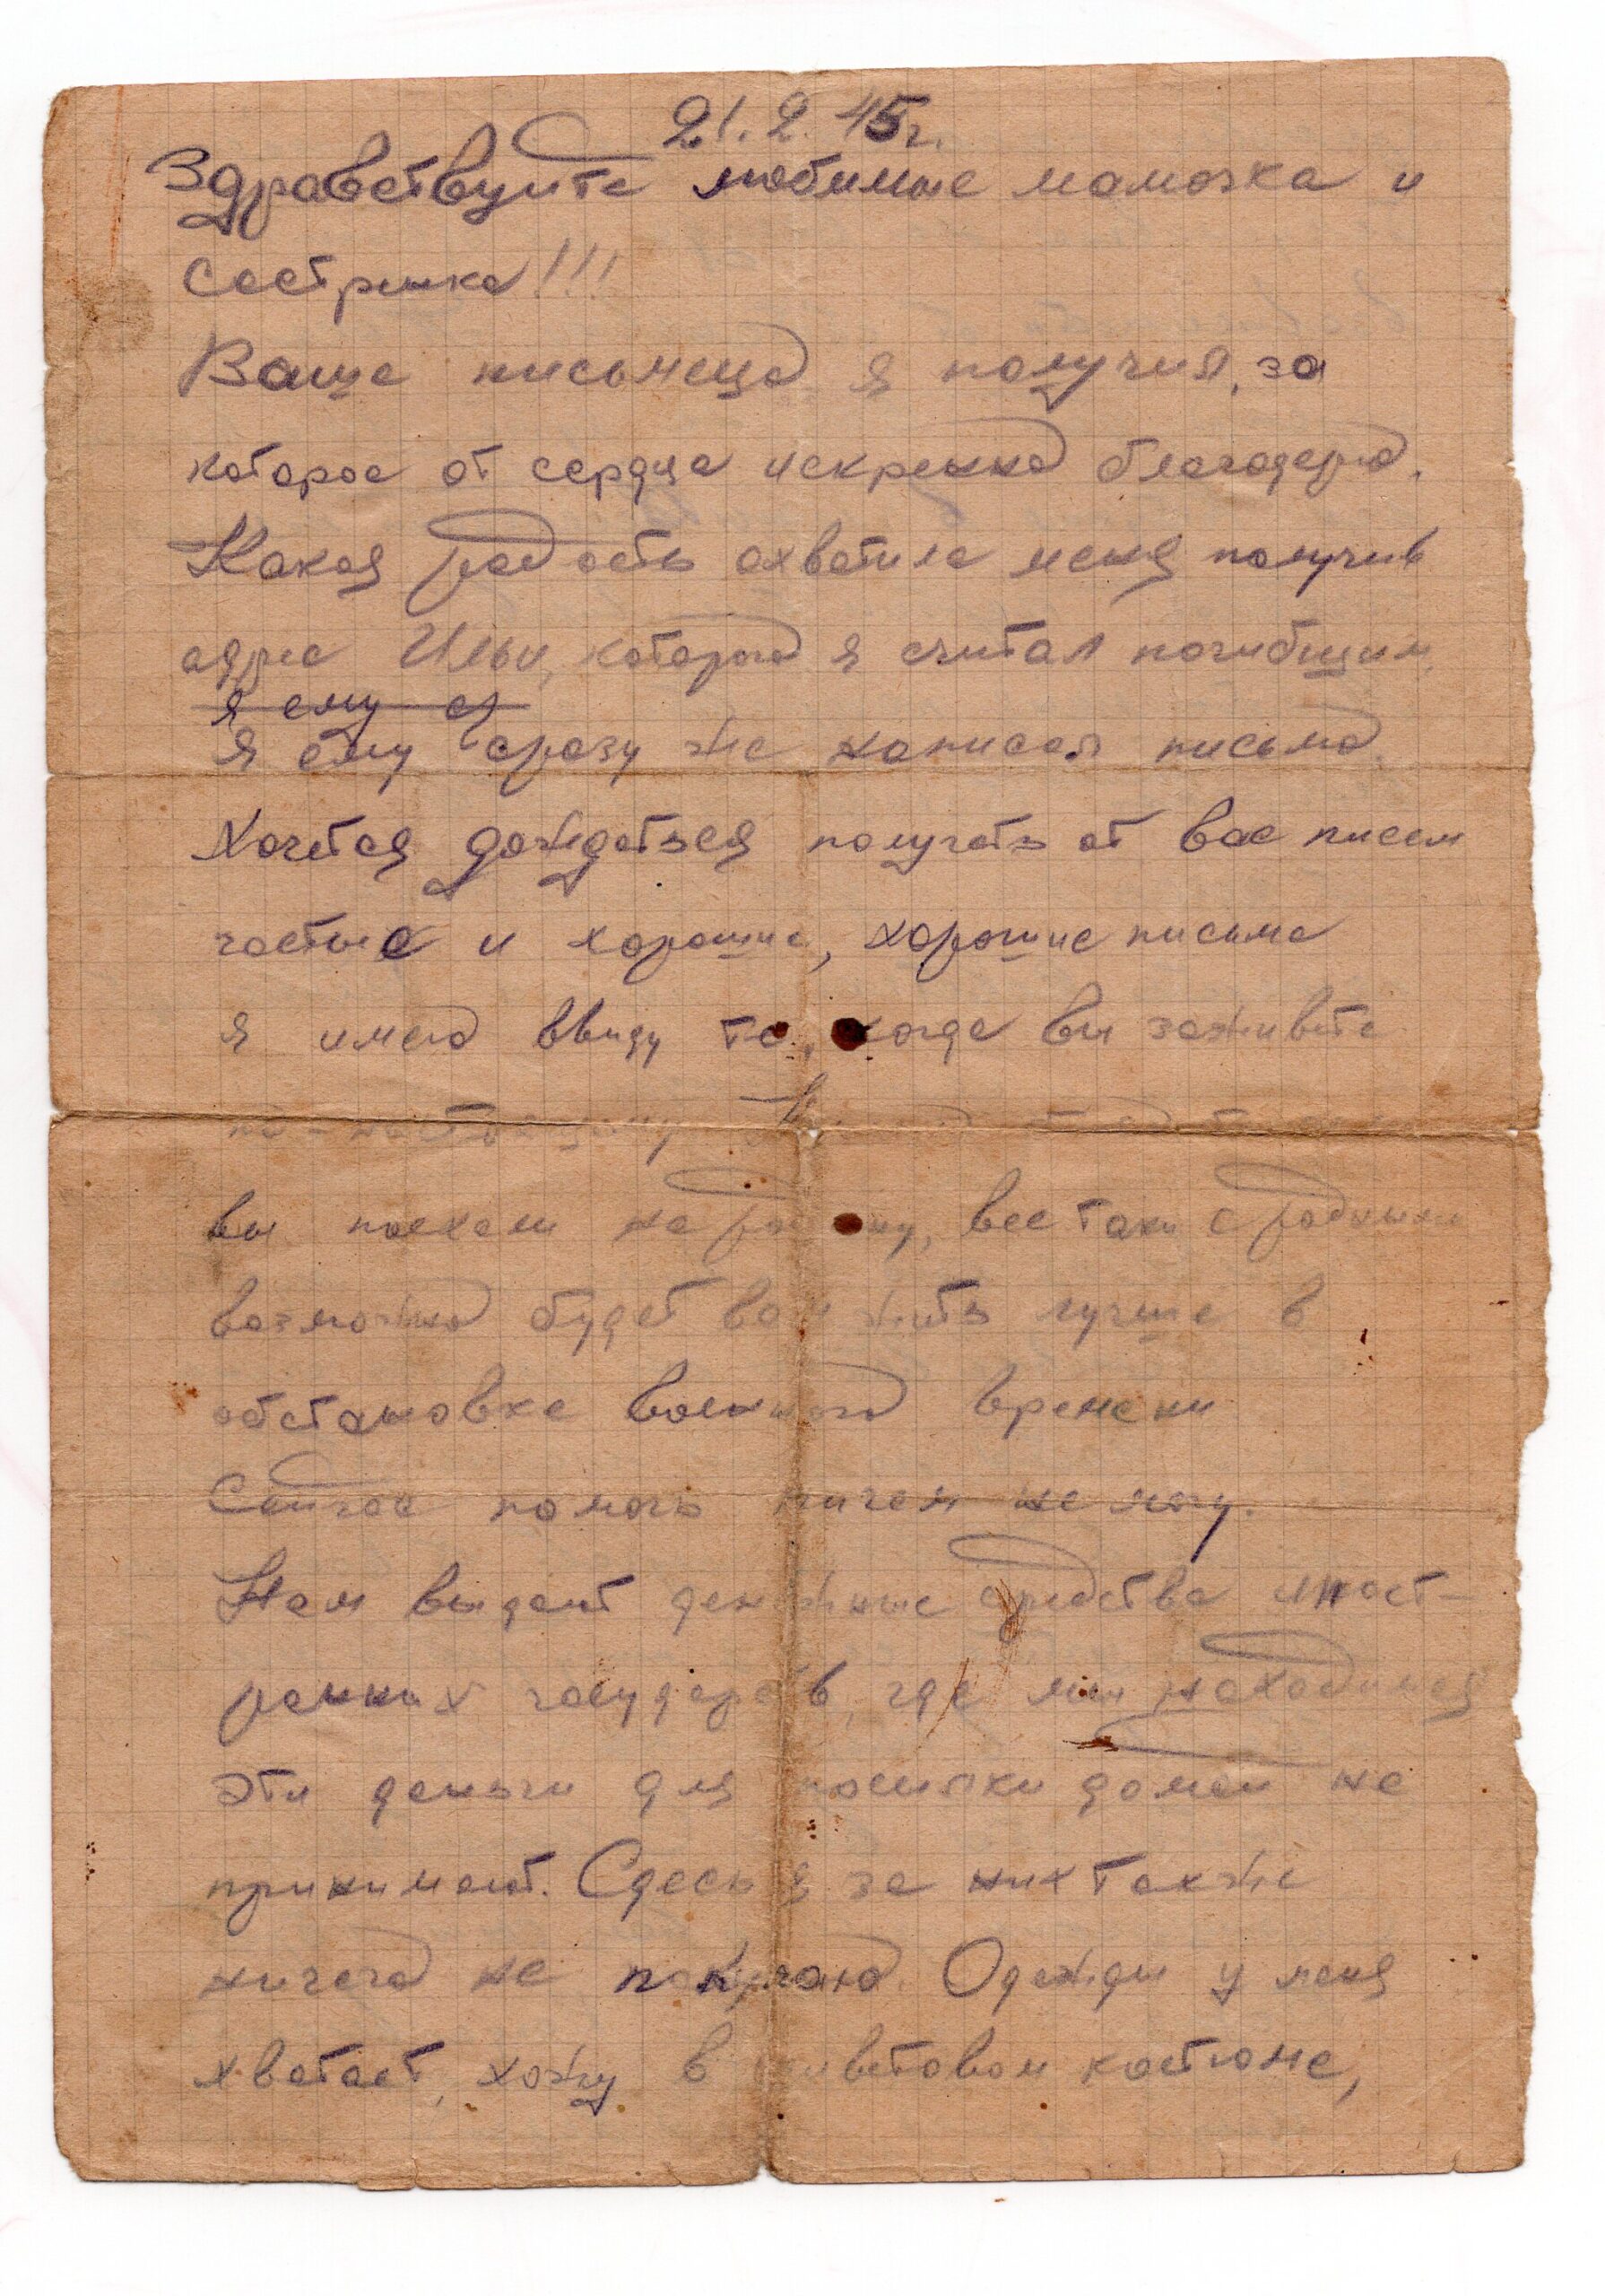 21.2.45г.
Здравствуйте любимые мамочка и
сестренка!!!
Ваше письмецо я получил, за
которое от сердца искренно благодарю.
Какая радость охватила меня получив
адрес Ильи, которого я считал погибшим.
я ему с
Я ему сразу же написал письмо.
Хочется дождаться получать от вас писем
частые и хорошие, хорошие письма
я имею ввиду то, когда вы заживете
по-настоящему.
вы поехали на родину, все таки с родными
возможно будет вам жить лучше в
обстановке военного времени
Сейчас помочь ничем не могу.
Нам выдают денежные средства иност-
ранных государств, где мы находимся
Эти деньги для посылки домой не
принимают. Сдесь я за них также
ничего не покупаю. Одежды у меня
хватает, хожу в костюме,